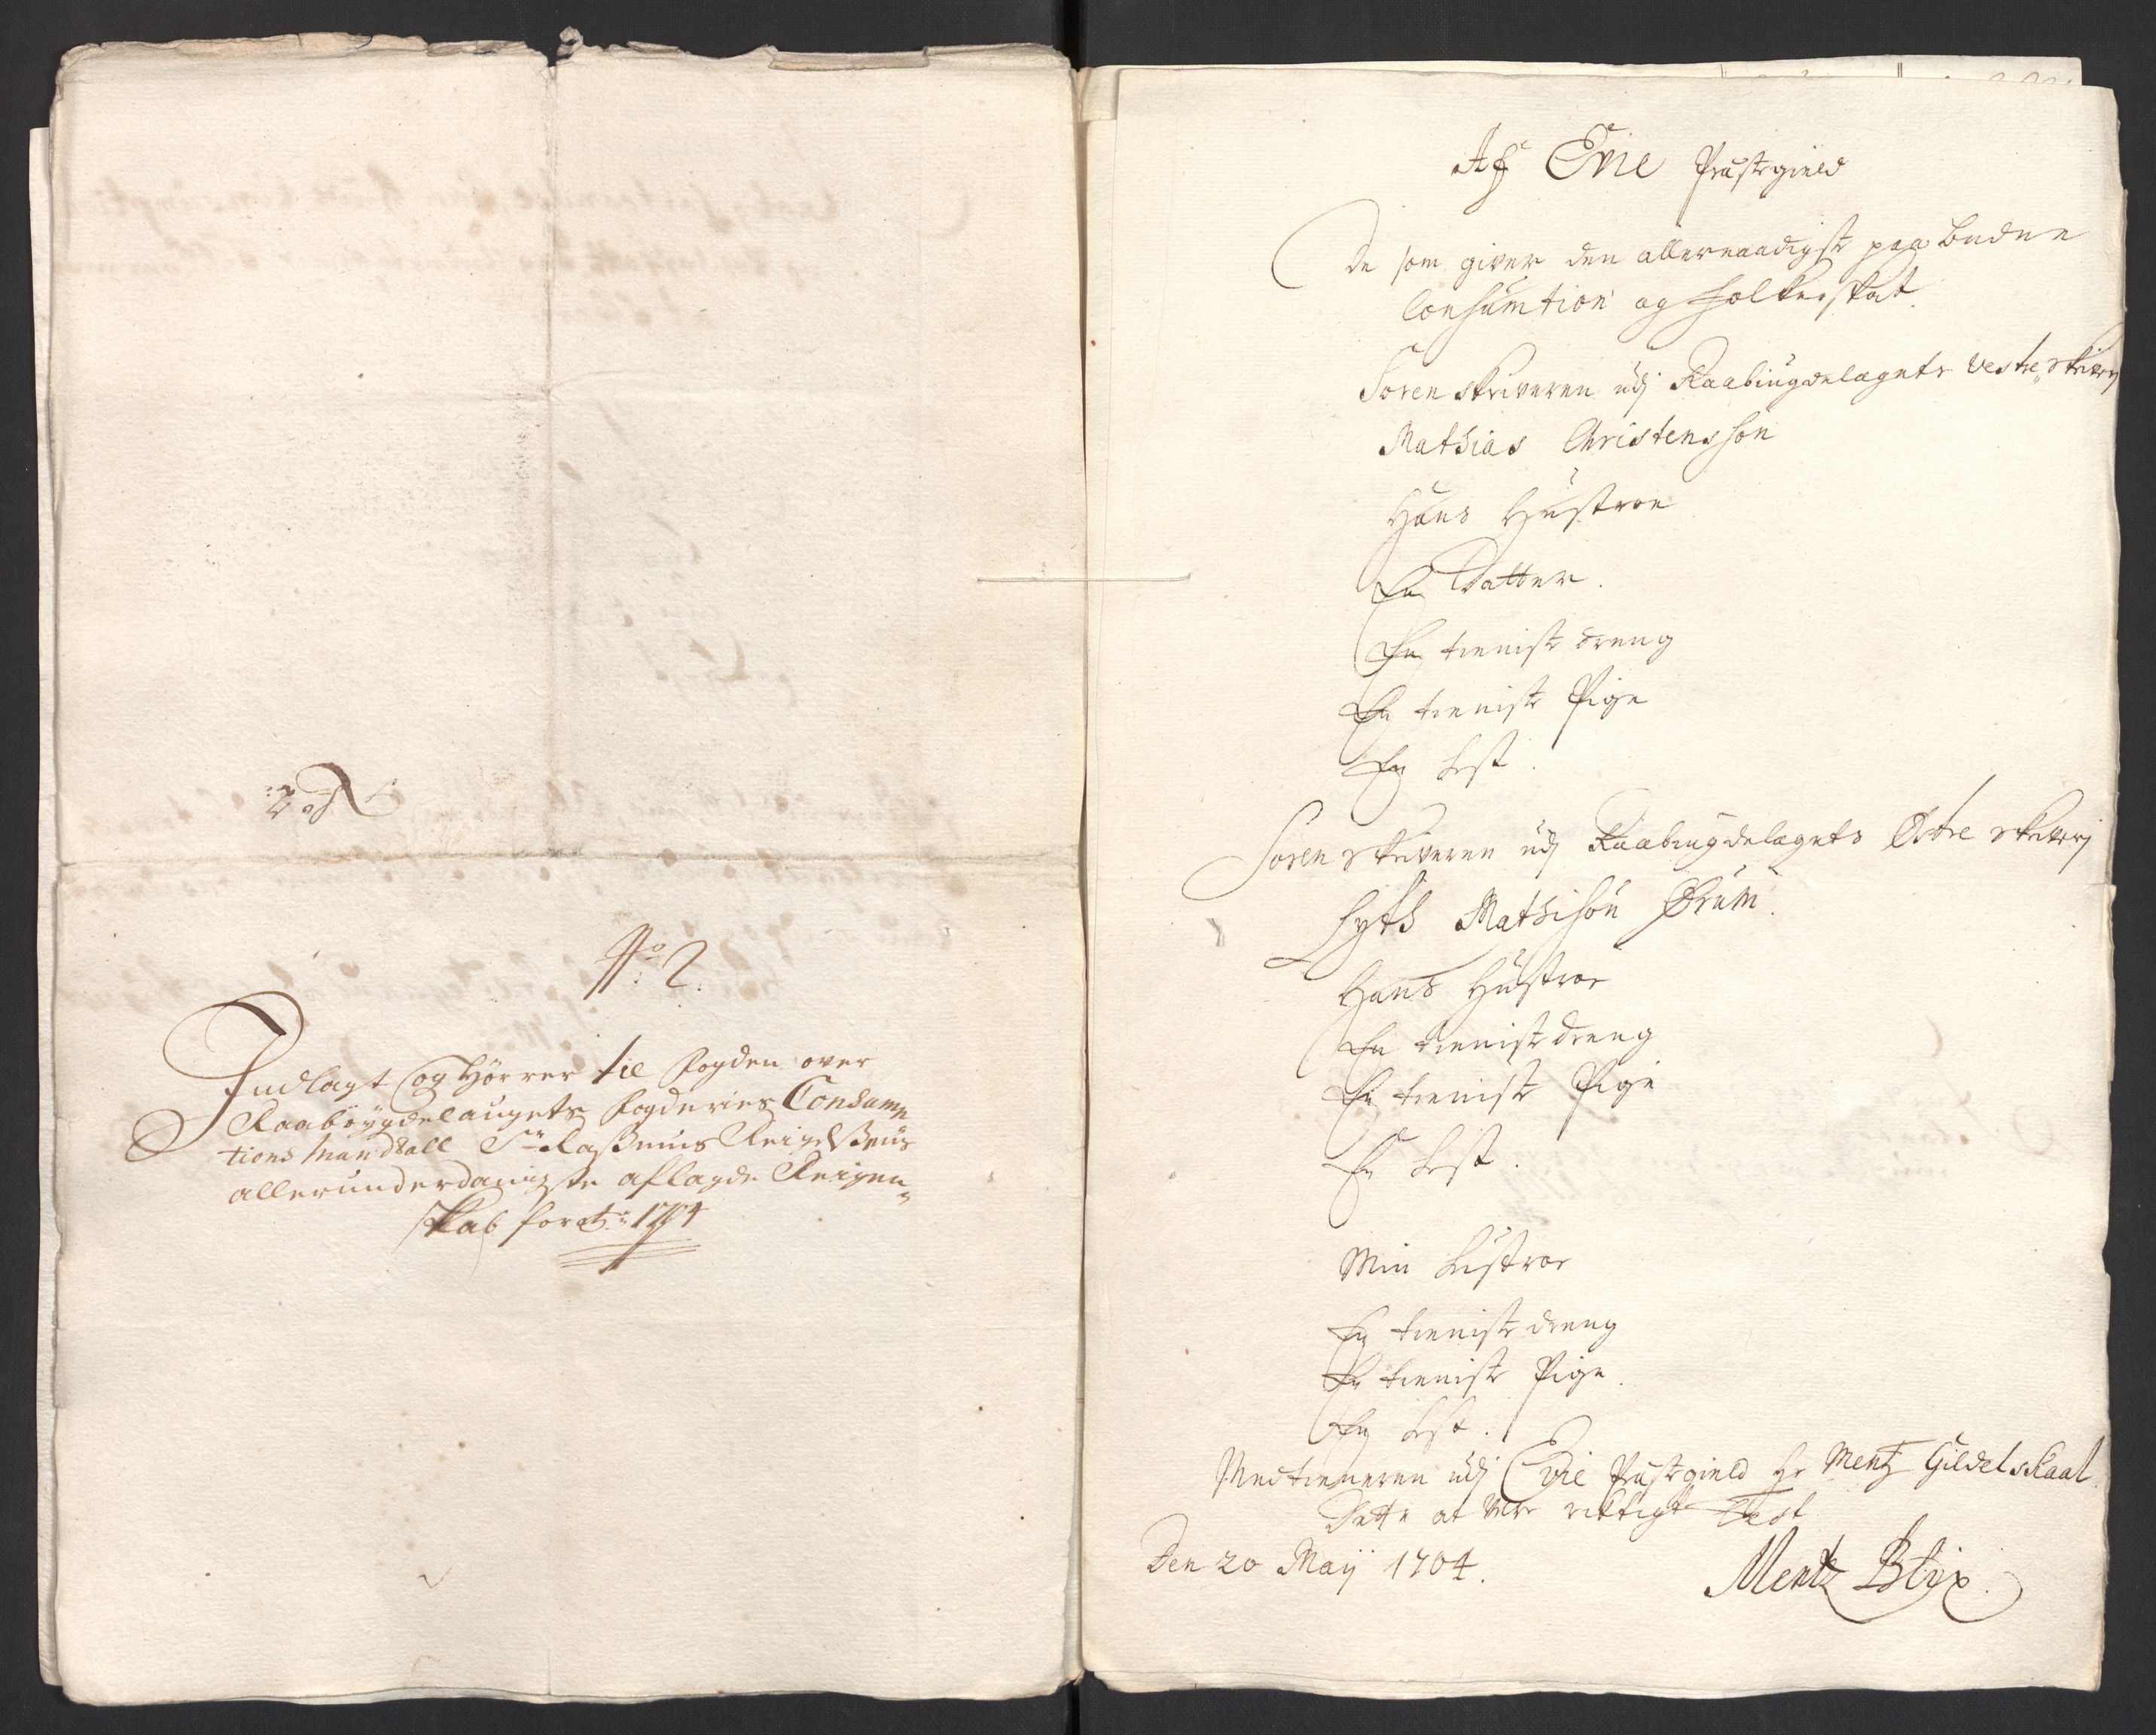 No 2.
Indlagt og hörrer til fogden over
Raaböygdelaugets fogderies Consump
tions Mandtall Sr Rasmus
allerunderdanigste aflagde Reigen„
skab for Ao 1704
Af Evie Præstegield
De som giver den allernaadigst paabudne
Consumtion og folkeskat.
Sorenskriveren udj Raabiugdelagets Vestre„ skriverj
Mathias Christenssøn
Hans Hustroe
En Datter.
En tienist dreng
En tienist Pige
En hest.
Sorenskriveren udj Raabiugdelagets Østre skriverj
Mathisøn Ørum.
Hans Hustroe
En tienist dreng
En tienist Pige
En hest.
Min Hustroe
En tienist dreng
En tienist Pige.
En hest.
Medtieneren udj Evie Præstegield Hr Mentz Gildelskaal.
Dette at være rigtigt Test
Den 20 Maij 1704.
Mentz Blix.